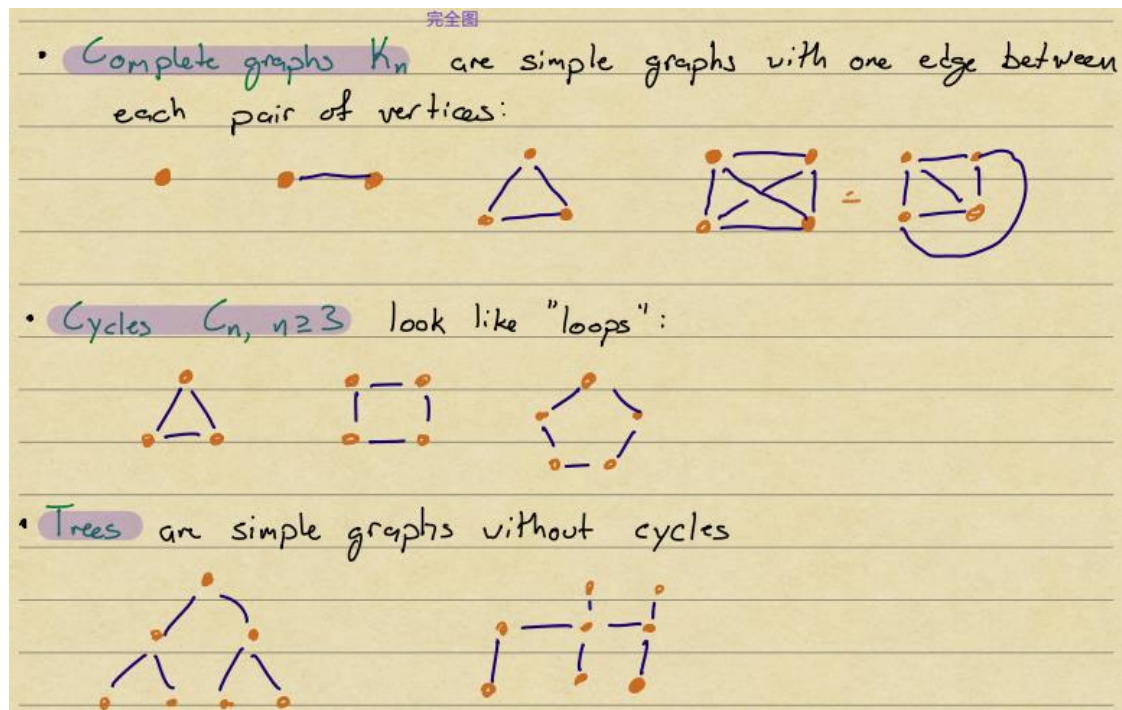 完全图
• Complete graphs Kn are simple graphs with one edge between
each pair of vertices:
=
• Cycles Cn, n≥3 look like "loops":
• Trees are simple graphs without cycles